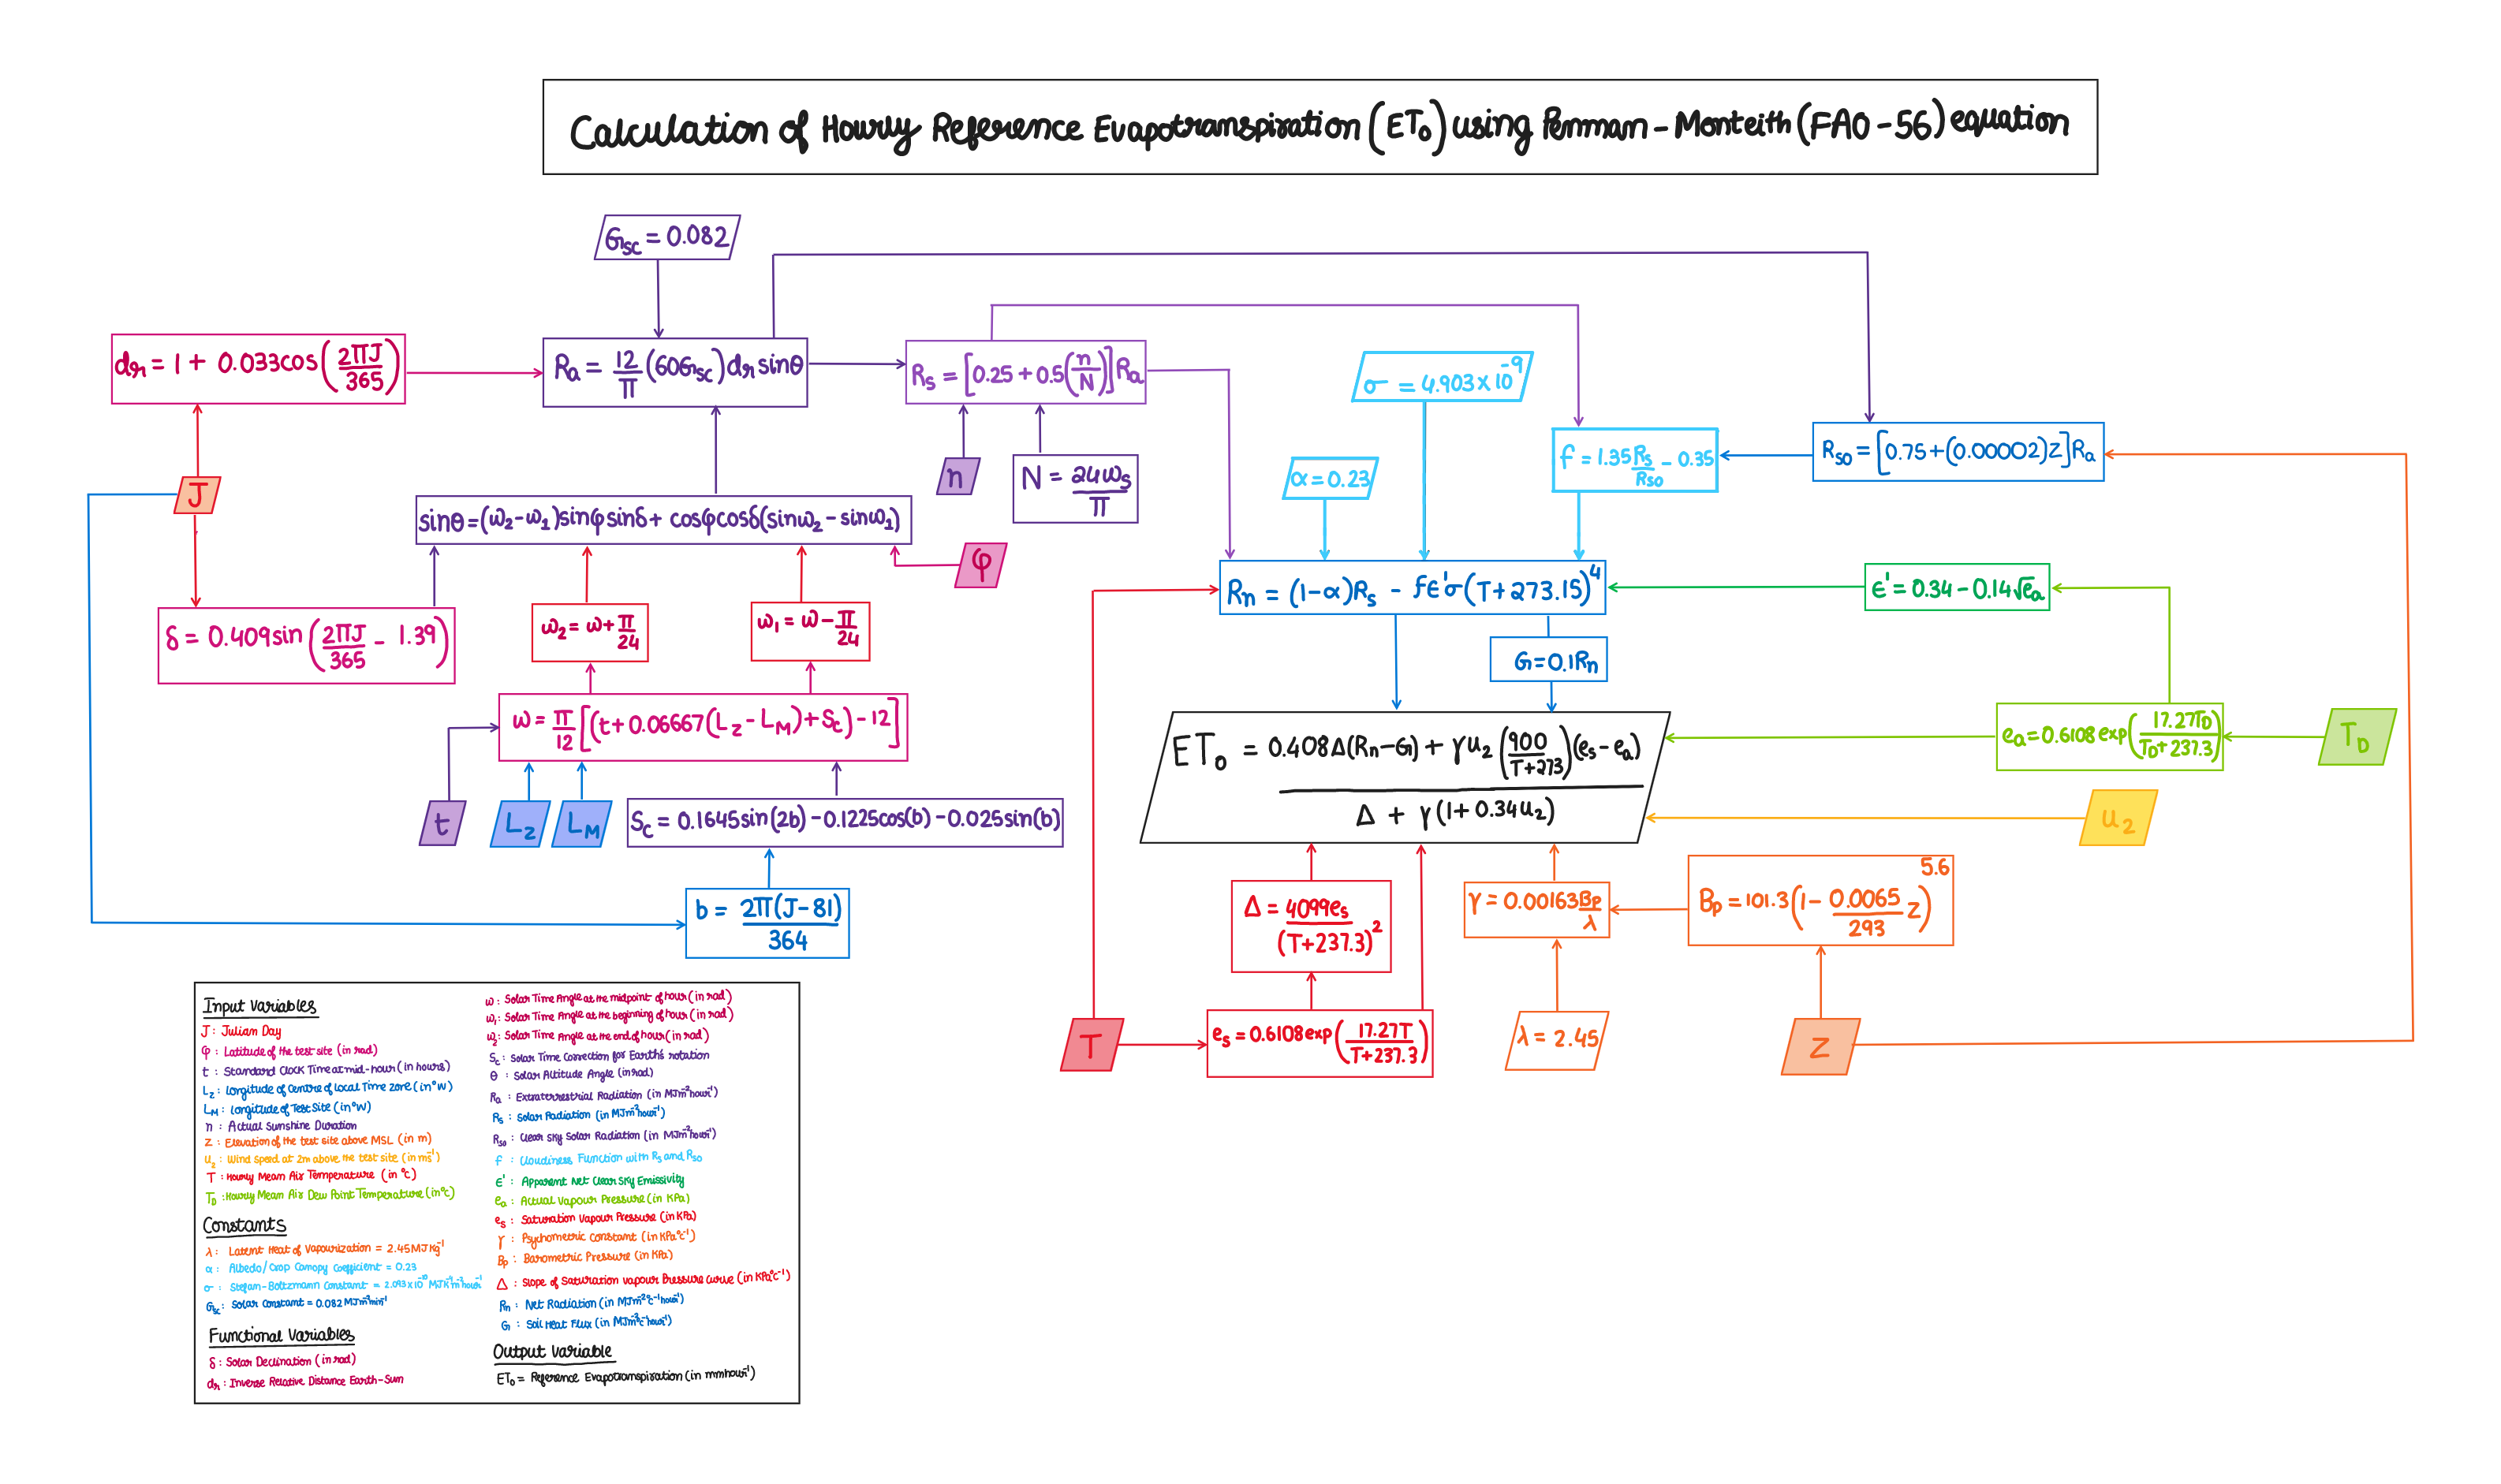 Calculation of Hourly Reference Evapotranspiration (ET₀) using Penman-Monteith (FAO-56) equation
G_sc = 0.082
d_r = 1 + 0.033cos(2πJ/365)
R_a = 12/π (60G_sc) d_r sinθ
R_s = [0.25 + 0.5(n/N)] R_a
σ = 4.903 × 10⁻⁹
α = 0.23
f = 1.35 R_s/R_so - 0.35
R_so = [0.75 + (0.00002)z] R_a
J
n
N = 24ω_s/π
sinθ = (ω₂-ω₁)sinφ sinδ + cosφcosδ(sinω₂ - sinω₁)
φ
R_n = (1-α)R_s - fε'σ(T+273.15)⁴
ε' = 0.34 - 0.14√e_a
δ = 0.409sin(2πJ/365 - 1.39)
ω₂ = ω + π/24
ω₁ = ω - π/24
G = 0.1R_n
ω = π/12 [(t + 0.06667(L_z - L_M) + S_c) - 12]
ET₀ = 0.408Δ(R_n-G) + γu₂(900/T+273)(e_s - e_a)
Δ + γ(1 + 0.34u₂)
e_a = 0.6108 exp(17.27T_D/T_D+237.3)
T_D
t
L_z
L_M
S_c = 0.1645sin(2b) - 0.1225cos(b) - 0.025sin(b)
u₂
b = 2π(J-81)/364
Δ = 4099e_s/(T+237.3)²
γ = 0.00163 B_p/λ
B_p = 101.3(1 - 0.0065/293 z)^5.6
T
e_s = 0.6108 exp(17.27T/T+237.3)
λ = 2.45
Z
Input Variables
J : Julian Day
φ : Latitude of the test site (in rad)
t : Standard Clock Time at mid-hour (in hours)
L_z : longitude of Centre of local Time zone (in °W)
L_M : longitude of Test Site (in °W)
n : Actual Sunshine Duration
z : Elevation of the test site above MSL (in m)
u₂ : Wind Speed at 2m above the test site (in ms⁻¹)
T : Hourly Mean Air Temperature (in °C)
T_D : Hourly Mean Air Dew Point Temperature (in °C)
Constants
λ : Latent Heat of Vapourization = 2.45 MJKg⁻¹
α : Albedo/Crop Canopy Coefficient = 0.23
σ : Stefan-Boltzmann Constant = 2.043 × 10⁻¹⁰ MJK⁻⁴m⁻²hour⁻¹
G_sc : Solar Constant = 0.082 MJm⁻²min⁻¹
Functional Variables
δ : Solar Declination (in rad)
d_r : Inverse Relative Distance Earth-Sun
ω : Solar Time Angle at the midpoint of hour (in rad)
ω₁ : Solar Time Angle at the beginning of hour (in rad)
ω₂ : Solar Time Angle at the end of hour (in rad)
S_c : Solar Time Correction for Earth's rotation
θ : Solar Altitude Angle (in rad)
R_a : Extraterrestrial Radiation (in MJm⁻²hour⁻¹)
R_s : Solar Radiation (in MJm⁻²hour⁻¹)
R_so : Clear Sky Solar Radiation (in MJm⁻²hour⁻¹)
f : Cloudiness Function with R_s and R_so
ε' : Apparent Net Clear Sky Emissivity
e_a : Actual Vapour Pressure (in KPa)
e_s : Saturation Vapour Pressure (in KPa)
γ : Psychometric Constant (in KPa°C⁻¹)
B_p : Barometric Pressure (in KPa)
Δ : Slope of Saturation Vapour Pressure Curve (in KPa°C⁻¹)
R_n : Net Radiation (in MJm⁻²°C⁻¹hour⁻¹)
G : Soil Heat Flux (in MJm⁻²°C⁻¹hour⁻¹)
Output Variable
ET₀ = Reference Evapotranspiration (in mmhour⁻¹)